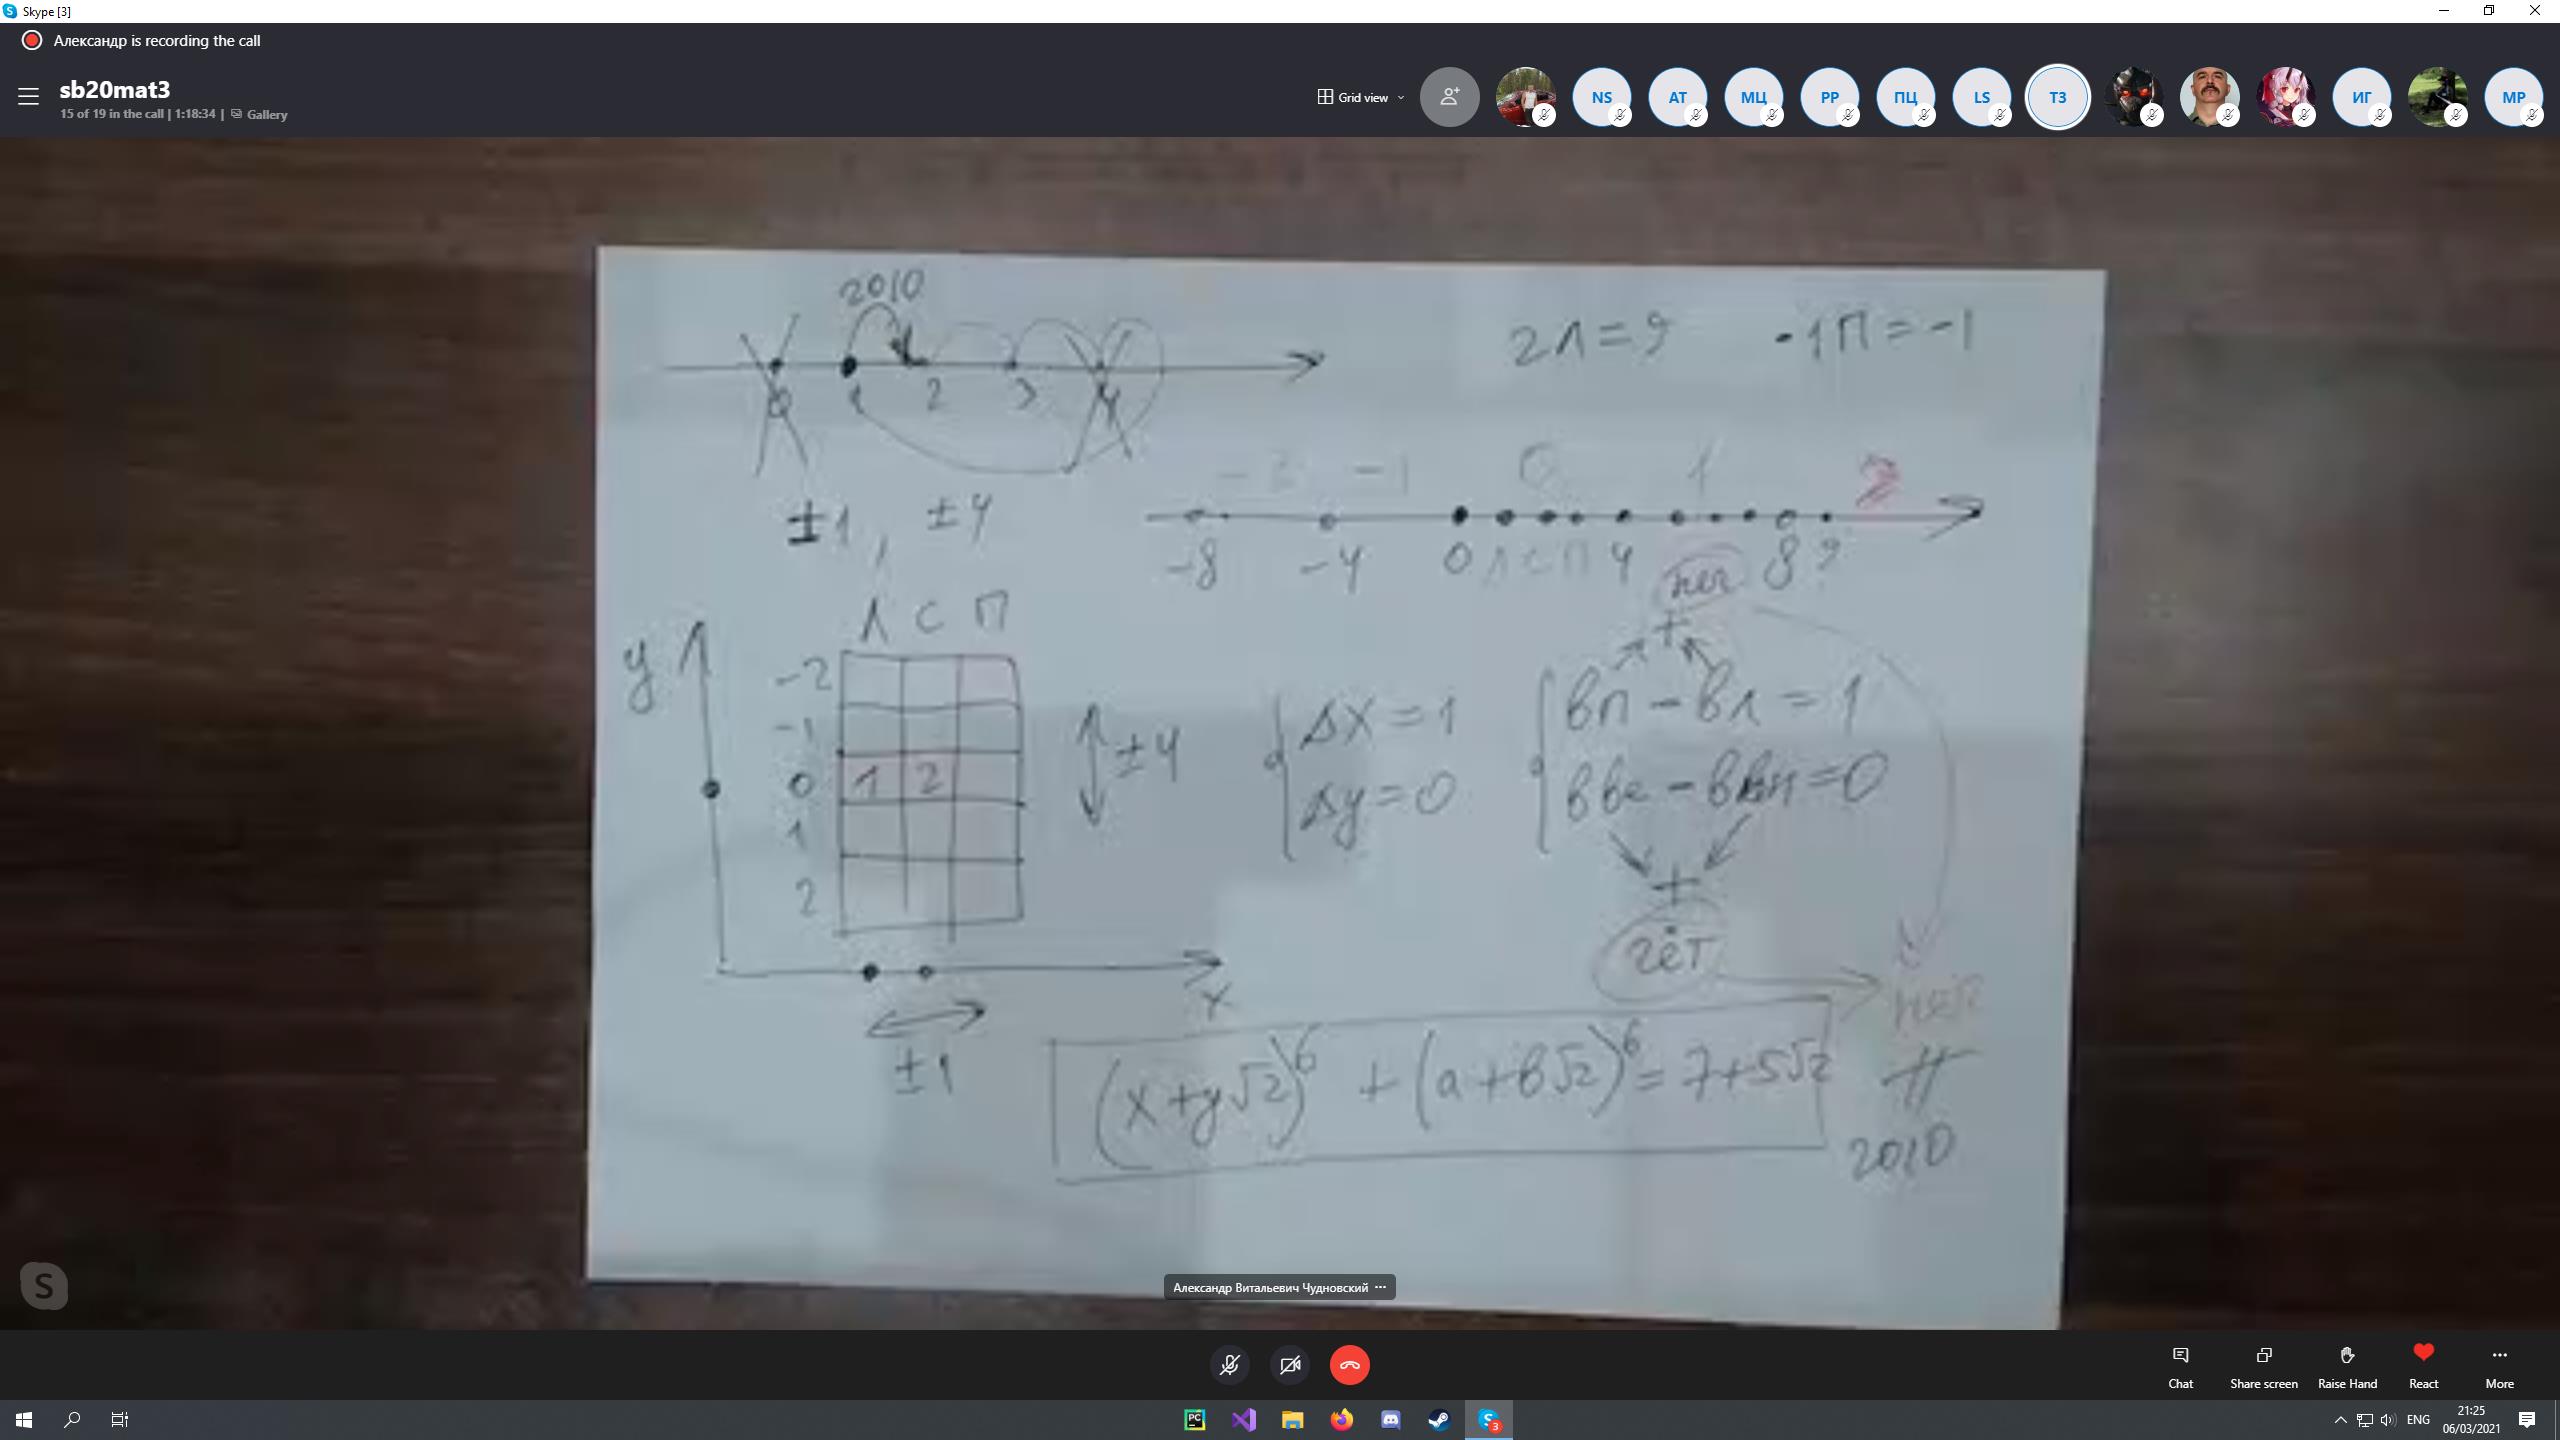 Skype [3]
Александр is recording the call
sb20mat3
15 of 19 in the call | 1:18:34 | Gallery
Grid view
NS
AT
МЦ
PP
ПЦ
LS
ТЗ
ИГ
МР
2010
0 1 2 3 4
±1, ±4
2Л=9 -1П=-1
-2 -1 0 1 2
-8 -4 0 Л С П 4 8 9
неч
Л С П
y
-2
-1
0 1 2
1
2
±4
Δx=1
Δy=0
вп-вл=1
вве-ввн=0
+
+
чёт
x
±1
(x+y√2)⁶ + (a+b√2)⁶ = 7+5√2
2010
Александр Витальевич Чудновский
Chat
Share screen
Raise Hand
React
More
ENG
21:25
06/03/2021